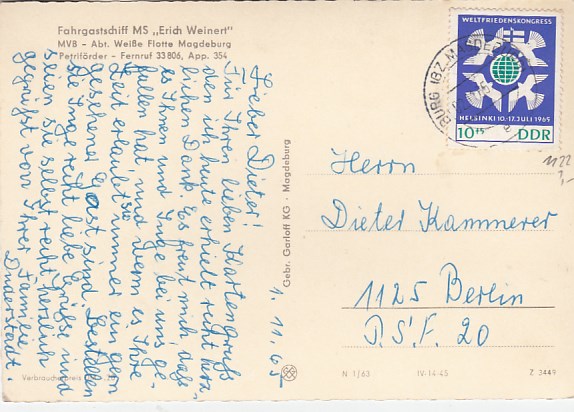 Fahrgastschiff MS „Erich Weinert"
MVB - Abt. Weiße Flotte Magdeburg
Petriförder - Fernruf 33806, App. 354
Lieber Dieter!
Für Ihren lieben Kartengruß
den ich heute erhielt recht herz-
lichen Dank. Es freut mich, daß
es Ihnen und Inge bei uns ge-
fallen hat und wenn es Ihre
Zeit erlaubt sie immer ein gern
gesehener Gast sind. Bestellen
sie Inge recht liebe Grüße und
seien sie selbst recht herzlich
gegrüßt von Ihrer Familie
Duderstadt.
1. 11. 65
Gebr. Garloff KG · Magdeburg
WELTFRIEDENSKONGRESS
HELSINKI 10.-17. JULI 1965
10+5 DDR
BURG (BZ. MAGDEBURG)
1122
Herrn
Dieter Kammerer
1125 Berlin
P.S.F. 20
Verbraucherpreis
N 1/63 IV-14-45 Z 3449